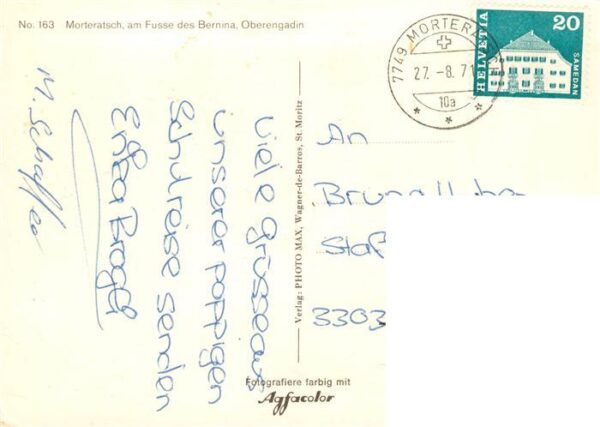 No. 163 Morteratsch, am Fusse des Bernina, Oberengadin
7749 MORTERATSCH
27. -8. 71
10a
HELVETIA
20
SAMEDAN
Viele Grüsse aus
unserer poppigen
Schulreise senden
Erika
M. Schaffer
Verlag: PHOTO MAX, Wagner-de-Barros, St. Moritz
An
Bruno
3303
Fotografiere farbig mit
Agfacolor